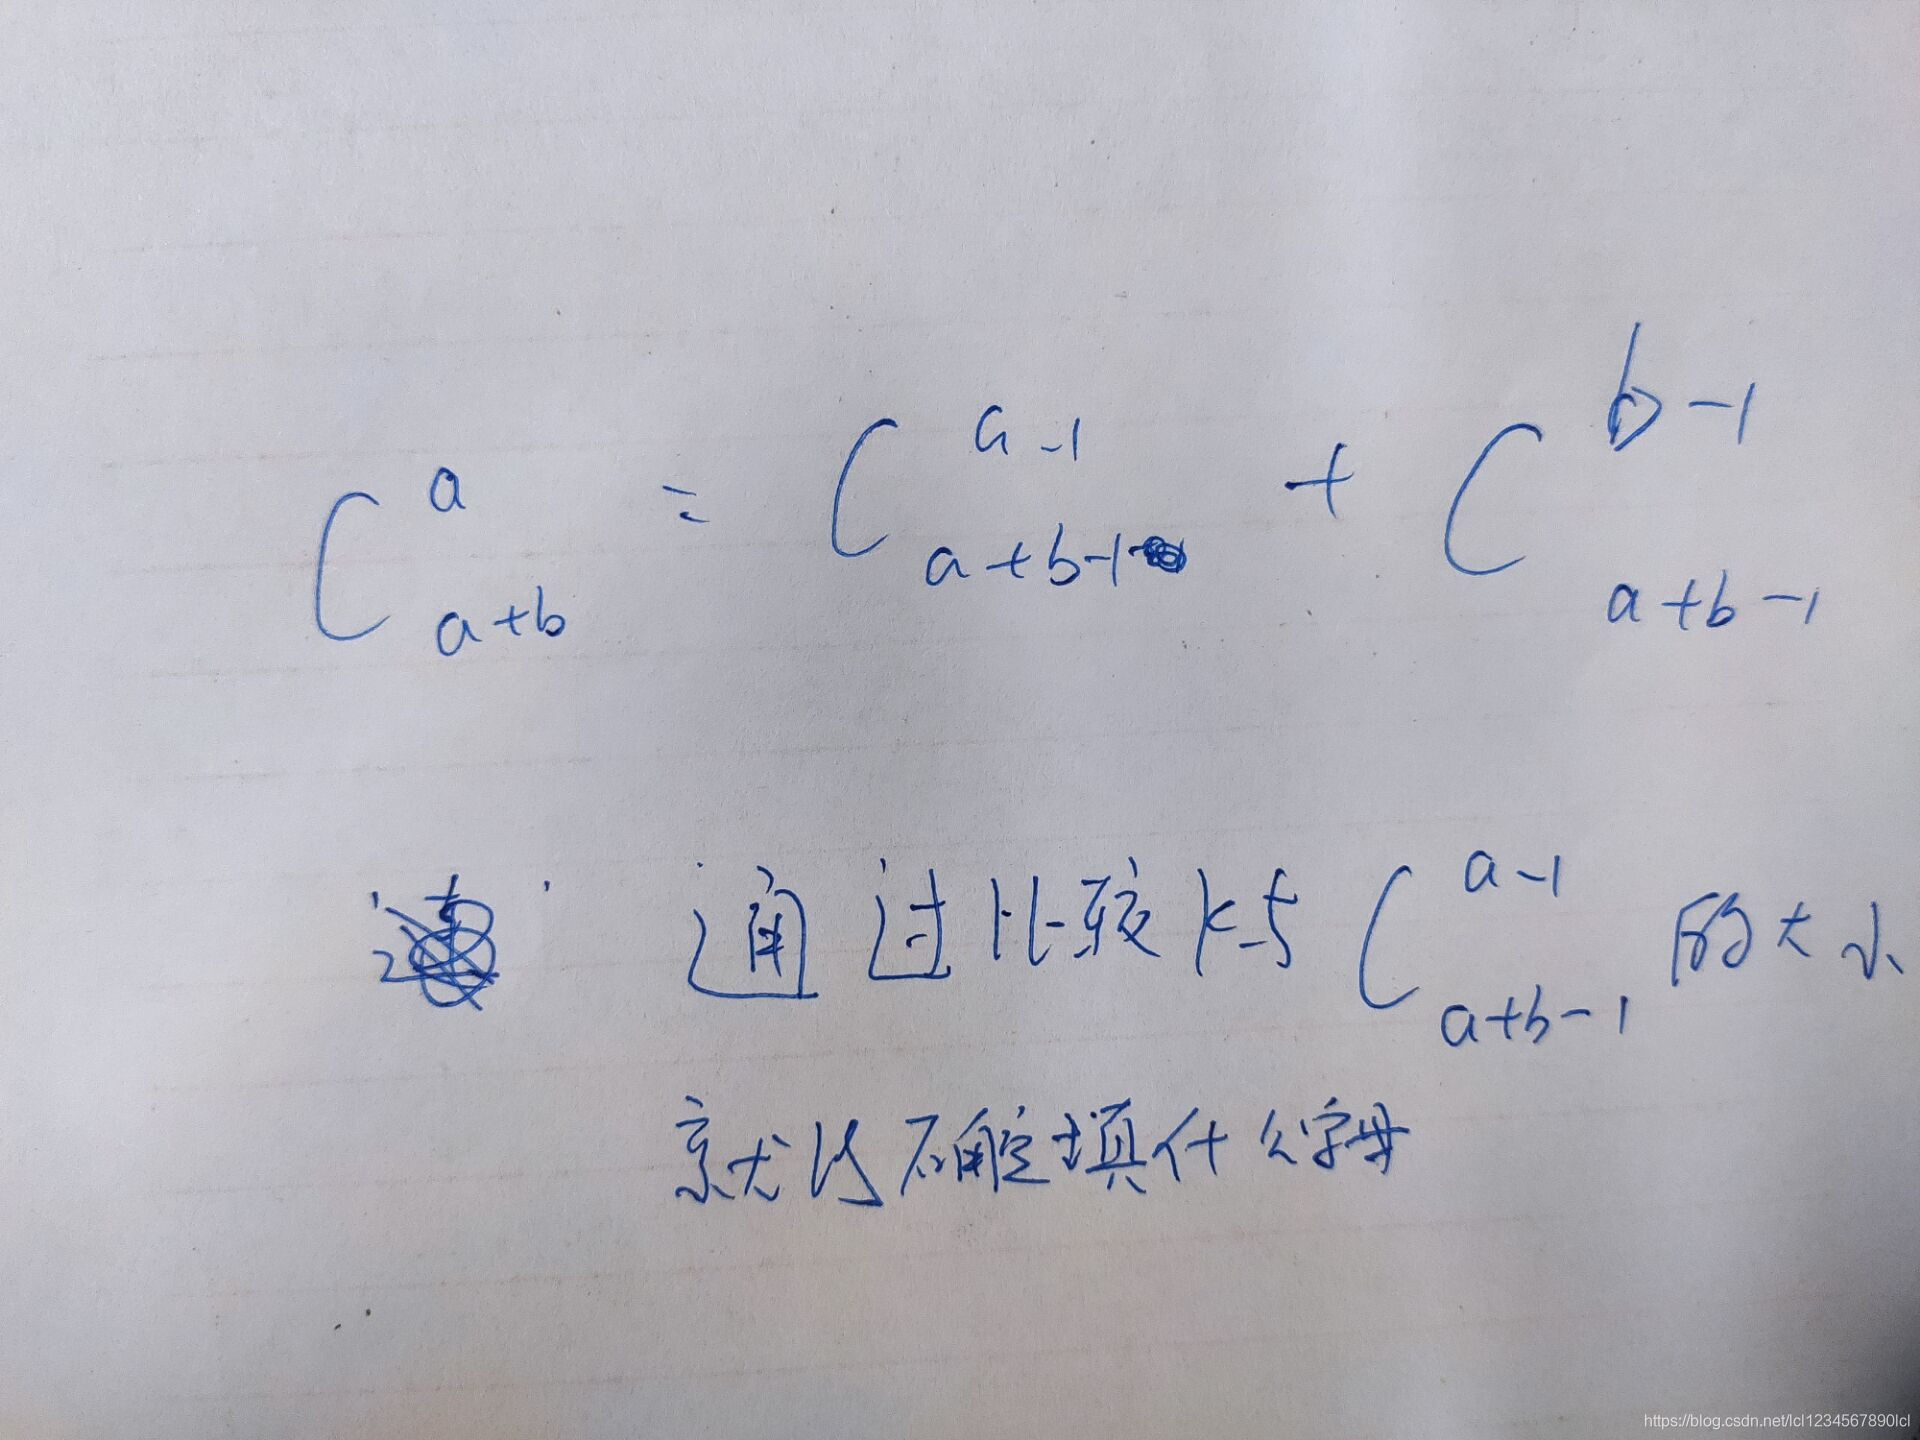 C_{a+b}^{a} = C_{a+b-1}^{a-1} + C_{a+b-1}^{b-1}
通过比较k与 C_{a+b-1}^{a-1} 的大小
就以确定填什么字母
https://blog.csdn.net/lcl1234567890lcl